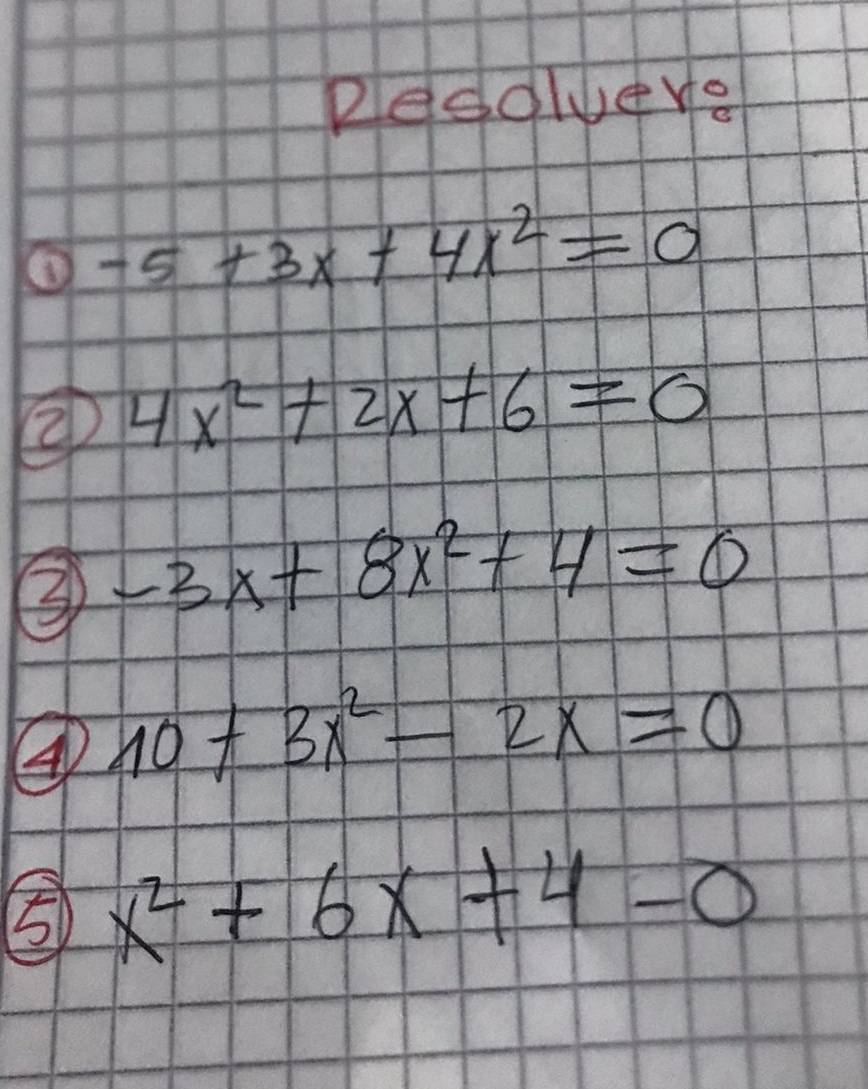 Resolver:
① -5 + 3x + 4x² = 0
② 4x² + 2x + 6 = 0
③ -3x + 8x² + 4 = 0
④ 10 + 3x² - 2x = 0
⑤ x² + 6x + 4 - 0